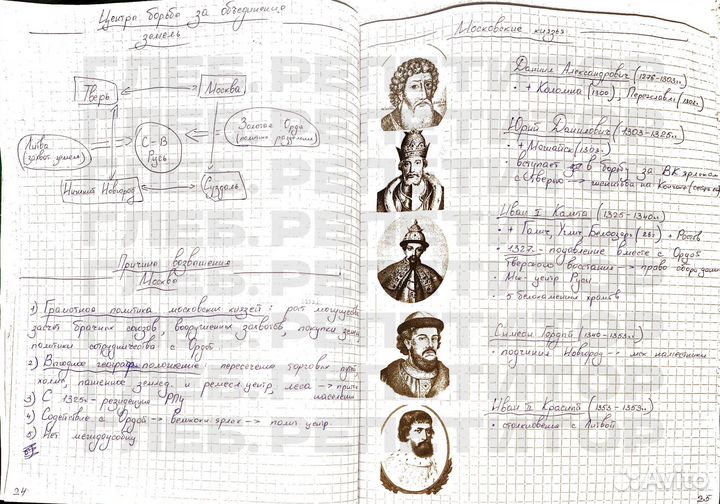 Центра борьба за объединение
земель
Тверь
Москва
Литва
(захват земель)
С-В
Русь
Золотая Орда
(политика разделения)
Нижний Новгород
Суздаль
Причины возвышения
Москвы
1) Грамотная политика московских князей: рост могущества
засчёт брачных союзов, вооруженных захватов, покупки земель,
политики сотрудничества с Ордой
2) Выгодное географ. положение: пересечение торговых
пашенное землед. и ремесл. центр, леса → населения
3) С 1325г - резиденция РПЦ
4) Содействие с Ордой → великокн. ярлык → полит. центр.
5) Нет междоусобиц
24
Московские князья
Даниил Александрович (1276-1303гг)
• + Коломна (1300), Переславль (1302г.)
Юрий Данилович (1303-1325гг)
• + Можайск (1303г.)
• вступает в борьбу за ВК ярлык
с Тверью → женитьба на Кончаке
Иван I Калита (1325-1340гг)
• + Галич, Углич, Белоозеро (28г) + Ростов
• 1327 - подавление вместе с Ордой
Тверского восстания → право сбора дани
• Мск - центр Руси
• 5 белокаменных храмов
Симеон Гордый (1340-1353гг)
• подчинил Новгород → мск наместники
Иван II Красный (1353-1359гг)
• столкновения с Литвой
25
ГЛЕБ.РЕПЕТИТОР
Avito